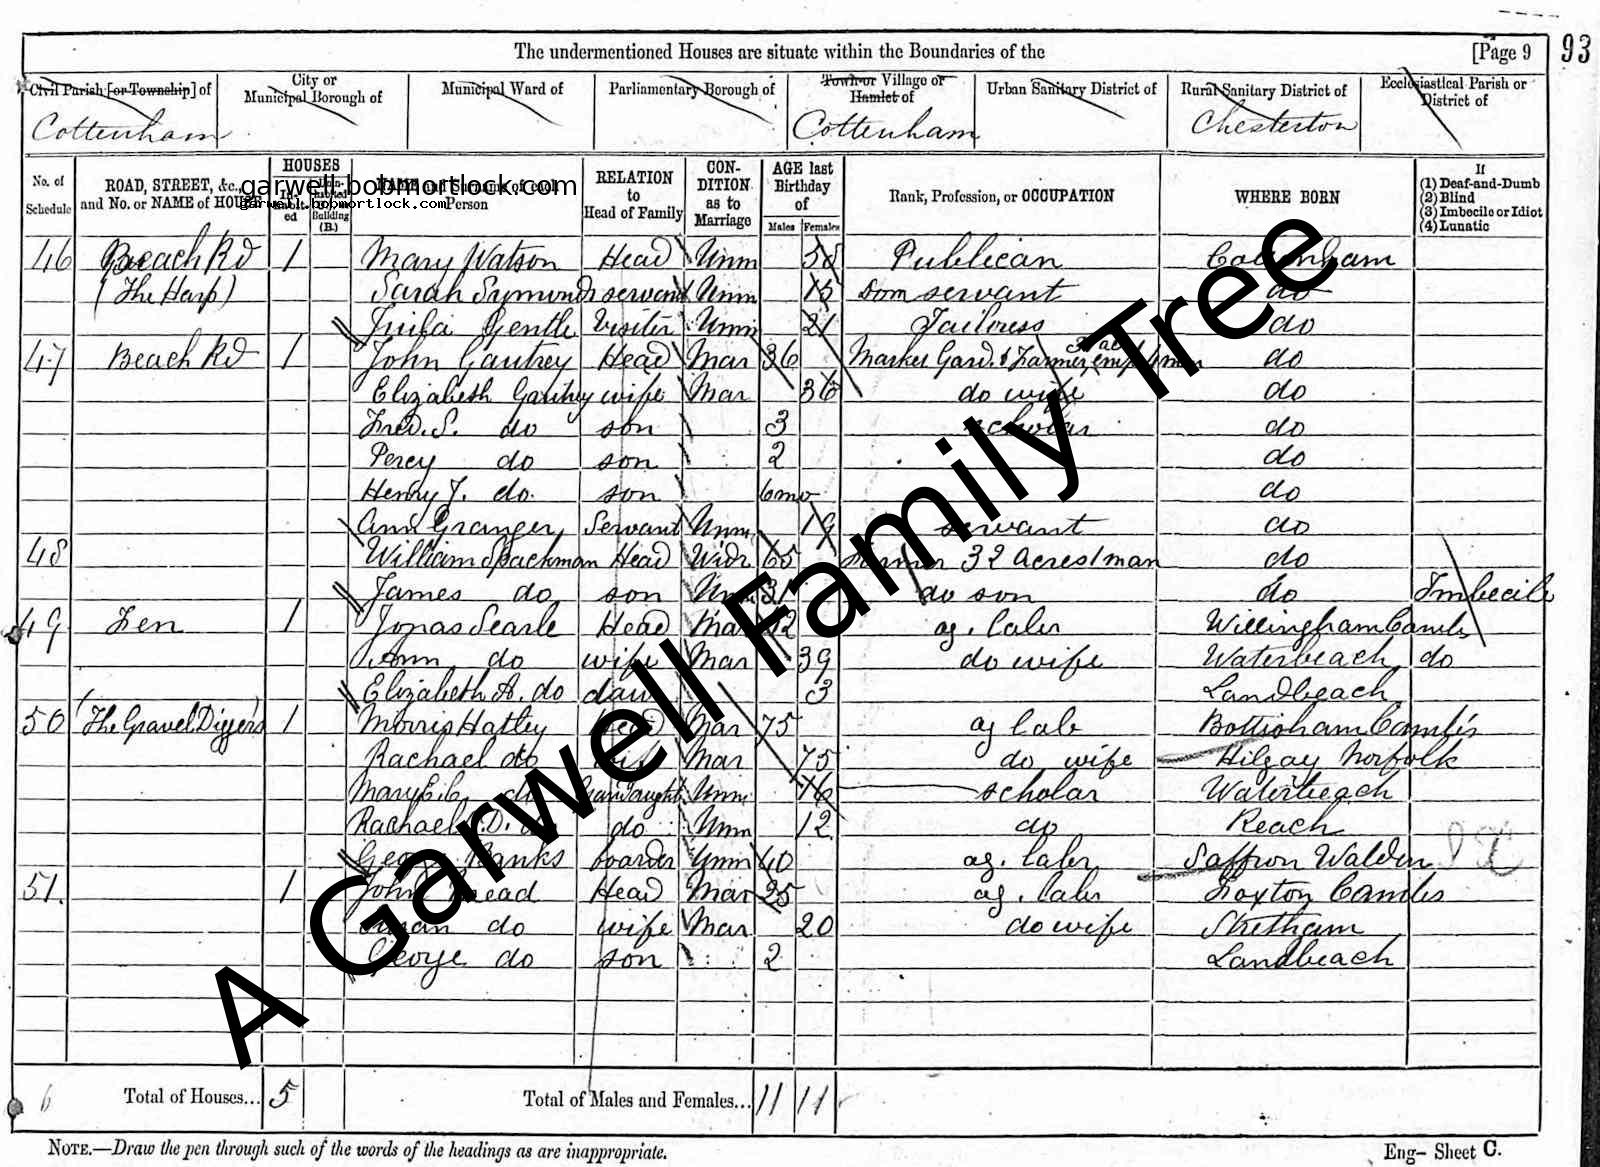 93
The undermentioned Houses are situate within the Boundaries of the [Page 9
Civil Parish [or Township] of City or Municipal Borough of Municipal Ward of Parliamentary Borough of Town or Village or Hamlet of Urban Sanitary District of Rural Sanitary District of Ecclesiastical Parish or District of
Cottenham Cottenham Chesterton
No. of Schedule ROAD, STREET, &c., and No. or NAME of HOUSE HOUSES NAME and Surname of each Person RELATION to Head of Family CON-DITION as to Marriage AGE last Birthday of Males Females Rank, Profession, or OCCUPATION WHERE BORN If (1) Deaf-and-Dumb (2) Blind (3) Imbecile or Idiot (4) Lunatic
garwell.bobmortlock.com
garwell.bobmortlock.com
46 Beach Rd 1 Mary Watson Head Unm Publican Cottenham
(The Harp) Sarah Symonds servant Unm 15 Dom servant do
Gentle Visitor Unm 21 Tailoress do
47 Beach Rd 1 John Gautrey Head Mar 36 Market Gard. & Farmer men do
Elizabeth Gautrey wife Mar 36 do wife do
Fred. S. do son 3 scholar do
Percy do son 2 do
Henry J. do son 6mo do
Ann Granger Servant Unm 19 servant do
48 William Spackman Head Widr 65 Farmer 32 Acres 1 man do
James do son Unm 31 do son do Imbecile
49 Fen 1 Jonas Searle Head Mar 42 ag. labr Willingham Cambs
Ann do wife Mar 39 do wife Waterbeach do
Elizabeth A. do daur 3 Landbeach
50 (The Gravel Diggers) 1 Morris Hatley Head Mar 75 ag lab Bottisham Cambs
Rachael do wife Mar 75 do wife Hilgay Norfolk
Mary E. C. do Grandaught Unm 16 scholar Waterbeach
Rachael D. do do Unm 12 do Reach
George Banks boarder Unm 40 ag. labr Saffron Walden
51. 1 John Head Mar 25 ag. labr Foxton Cambs
do wife Mar 20 do wife Stretham
George do son 2 Landbeach
A Garwell Family Tree
6 Total of Houses... 5 Total of Males and Females... 11 11
NOTE.—Draw the pen through such of the words of the headings as are inappropriate.
Eng– Sheet C.